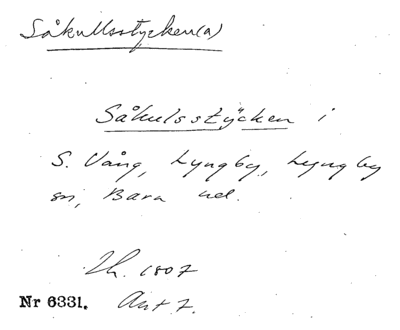 Såkullsstycken(a)
Såkulsstÿcken i
S. Vång, Lyngby, Lyngby
sn, Bara hd.
Lh. 1807
Nr 6331. Akt 7.